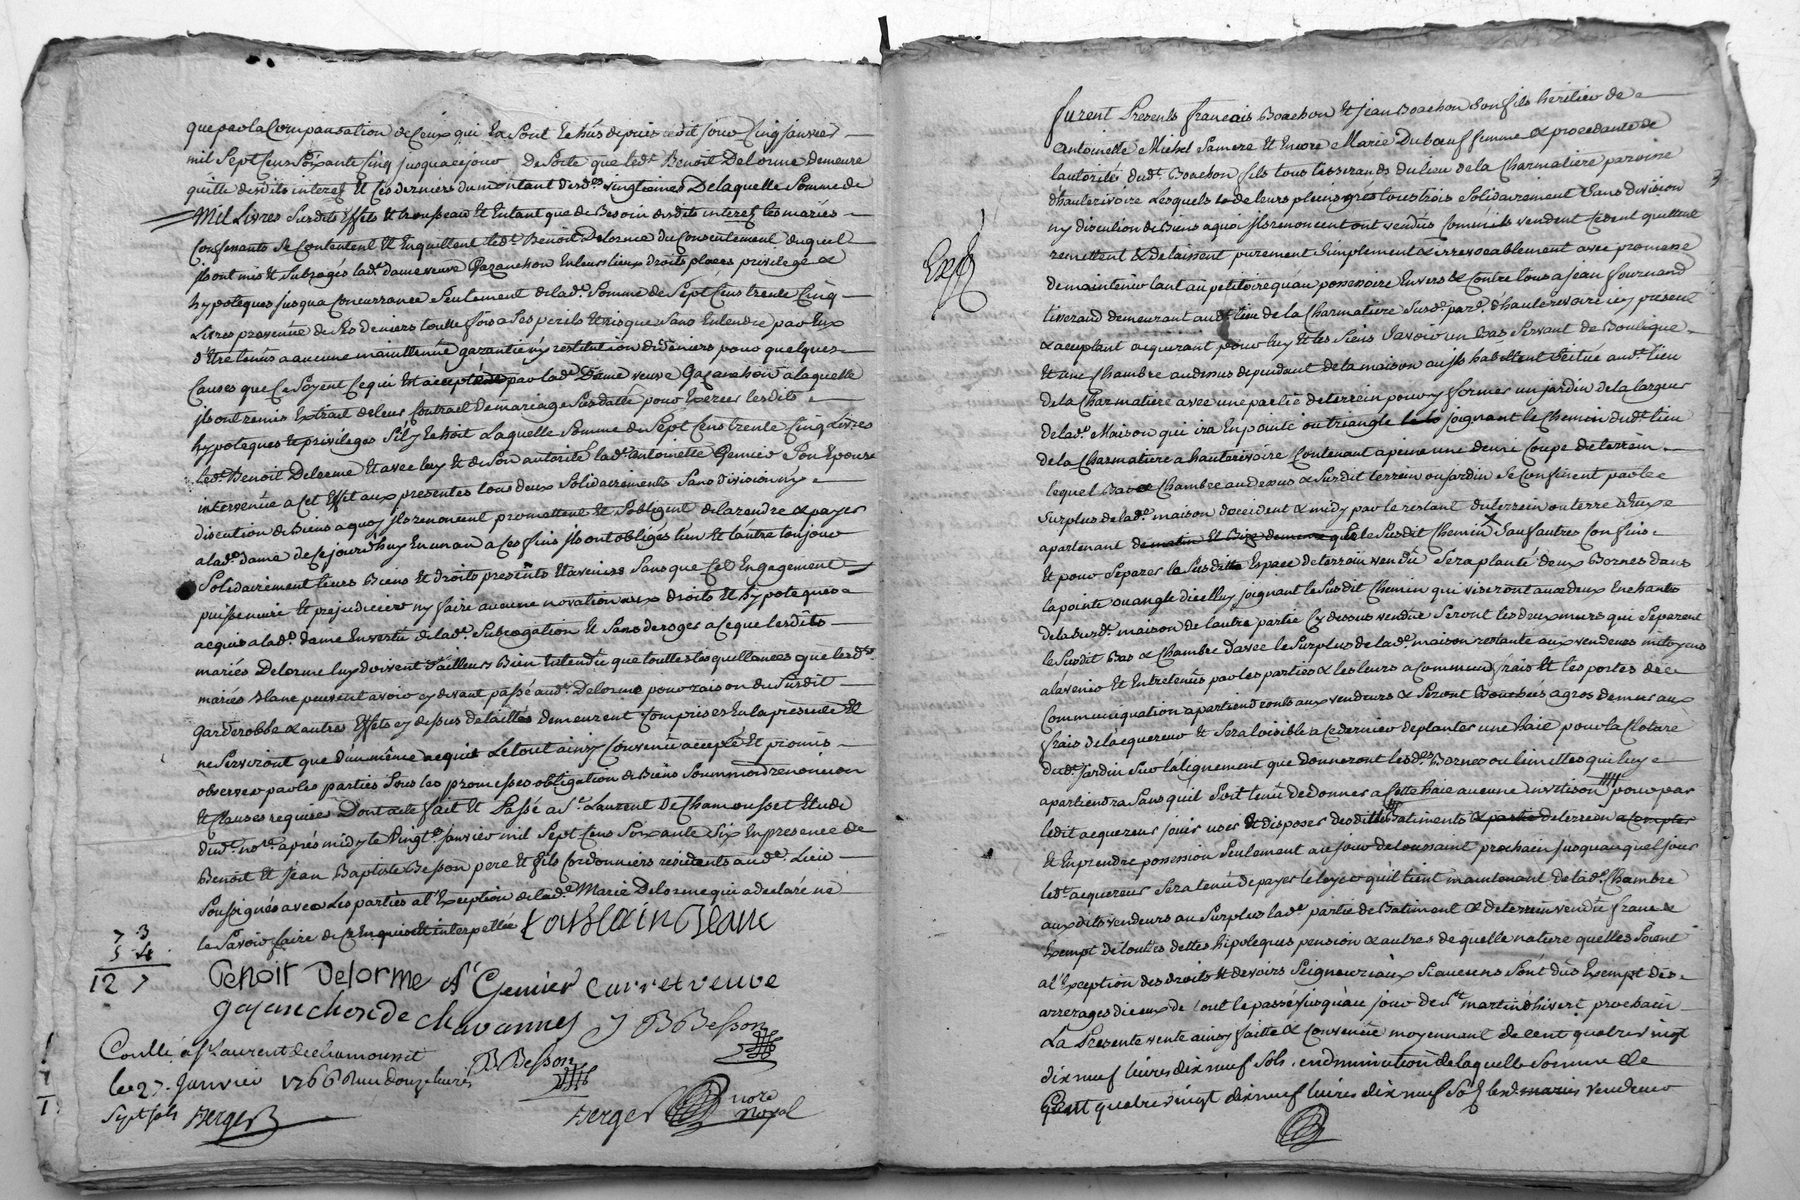 que par la Compansation de Ceux qui En sont Echûs depuis ledit jour Cinq janvier
mil Sept Cens Soixante Cinq jusqua ce jour de Sorte que led.t Benoit Delorme demeure
quitte desdits interez Et Ces derniers du montant desd. vingtiemes De laquelle Somme de
Mil Livres Susdits Effets Et trousseau Et Entant que de Besoin desdits interez les mariés
Consenants Se Contentent Et En quittent led.t Benoit Delorme du Consentement duquel
ils ont mis Et Subrogés lad.e dame veuve Gazanchon En leurs lieux droits places privilege &
hypoteques jusqua Concurrance Seulement de lad.e Somme de Sept Cens trente Cinq
Livres provenüe de Ses deniers toutte fois a Ses perils Et risque Sans Entendre par Eux
d'Etre tenus a aucune maintenüe garantie ny restitution de deniers pour quelques
Causes que Ce Soyent Ce qui Est accepté par lad.e Dame veuve Gazanchon a laquelle
ils ont remis Extrait de leur Contract de mariage Susdatté pour Exercer lesdits
hypoteques Et privileges Sil y Echoit Laquelle Somme de Sept Cens trente Cinq Livres
led.t Benoit Delorme Et avec luy Et de Son autorité lad.e antoinette Genier Son Epouse
intervenüe a Cet Effet aux presentes tous deux Solidairements Sans division ny
discution de Biens a quoy ils renoncent promettent Et S'obligent de la rendre & payer
a lad.e dame de Ce jourd'huy En un an a Ces fins ils ont obligés l'un Et l'autre toujour
Solidairement leurs Biens Et droits presents Et avenirs Sans que Cet Engagement
puisse nuire Et prejudicier ny faire aucune novation aux droits Et hypoteques
acquis a lad.e dame En vertû de lad.e Subrogation Et Sans deroger a Ce que lesdits
mariés Delorme luy doivent d'ailleurs Bien Entendu que touttes les quittances que lesd.s
mariés Blanc peuvent avoir cy devant passé aud.t Delorme pour raison du Susdit
garderobbe & autres Effets cy dessus detaillés demeurent Comprises En la présente Et
ne Serviront que d'un même acquit Le tout ainsy Convenû accepté Et promis
observer par les parties Sous les promesses obligation de Biens Soummond renoncion
Et Clauses requises Dont acte fait Et Passé a S.t Laurent De Chamousset Etude
dud.t no.re après midy le Vingt.e janvier mil Sept Cens Soixante Six En presence de
Benoit Et jean Baptiste Besson pere Et fils Cordonniers résidents aud.t Lieu
Soussignés avec Les parties a l'Exception de lad.e Marie Delorme qui a declaré ne
le Savoir faire de Ce Enquise Et interpellée toussain Blanc
7 3
5 4
12 7
Benoit Delorme A Genier Carret veuve
gazanchon de chavannes J B Besson
Conllé a St Laurent de chamousset
B Besson
le 27. Janvier 1766 Reçu douze livres
Sept sols Berger
Berger
no.re
royal
furent Presents francois Boachon Et jean Boachon Son fils heritier de
antoinette Michel Sa mere Et Encore Marie Duboeuf femme & procedante de
l'autorité dud.t Boachon fils tous tisserands du lieu de la Charmatiere paroisse
d'hauterivoire Lesquels de leurs pleins grés tous trois Solidairement Sans division
ny discution de Biens a quoi ils renoncent ont vendus Comme ils vendent Cedent quittent
remettent & delaissent purement Simplement & irrevocablement avec promesse
de maintenir tant au petitoire qu'au possessoire Envers & Contre tous a jean fournand
tisserand demeurant aud.t lieu de la Charmatiere Susd.e par.e d'hauterivoire icy present
& acceptant acquerant pour luy Et les Siens Savoir un Bas Servant de Boutique
Et une Chambre au dessus dependant de la maison ou ils habittent Scitué aud.t lieu
de la Charmatiere avec une partie de terrein pour y former un jardin de la largeur
de lad.e Maison qui ira En pointe ou triangle joignant le Chemin dud.t lieu
de la Charmatiere a hauterivoire Contenant a peine une demi Coupe de terrein
lequel Bas & Chambre au dessus & Susdit terrein ou jardin Se Confinent par le
Surplus de lad.e maison d'occident & midy par le restant du terrein ou terre a Eux
apartenant de matin Et Bize le Susdit Chemin Sauf autres Confins
Et pour Separer le Susdit Espace de terrein vendu Sera planté deux Bornes dans
la pointe ou angle dicelluy joignant le Susdit Chemin qui viseront aux deux Enchants
de la Susd.e maison de l'autre partie Cy dessus vendüe Seront les deux murs qui Separent
le Susdit Bas & Chambre d'avec le Surplus de lad.e maison restante aux vendeurs mitoyens
a lavenir Et Entretenüs par les parties & les leurs a Commun frais Et les portes de
Communiquation apartiendronts aux vendeurs & Seront Bouchées a gros de mur aux
frais de l'acquereur Et Sera loisible a Ce dernier de planter une haie pour la Cloture
dud.t jardin Sur l'alignement que donneront lesd.s Bornes ou limittes qui luy
apartiendra Sans quil Soit tenu de donner a Cette haie aucune invetison pour par
ledit acquereur jouir user Et disposer desdits Batiments & partie de terrein a Compter
Et En prendre possession Seulement au jour de toussaint prochain jusquauquel jour
led.t acquereur Sera tenu de payer le loyer quil tient maintenant de lad.e Chambre
auxdits vendeurs au Surplus lad.e partie de Batiment & de terrein vendu franc &
Exempt de touttes dettes hipoteques pension & autres de quelle nature quelles Soient
a l'Exception des droits Et devoirs Seigneuriaux Si aucuns Sont dûs Exempt des
arrerages diceux de tout le passé jusquau jour de S.t martin d'hivert prochain
La Presente vente ainsy faitte & Convenüe moyennant de Cent quatre vingt
dix neuf livres dix neuf Sols. en diminution de laquelle Somme de
Cent quatre vingt dix neuf livres dix neuf Sols les.d mariés vendeurs